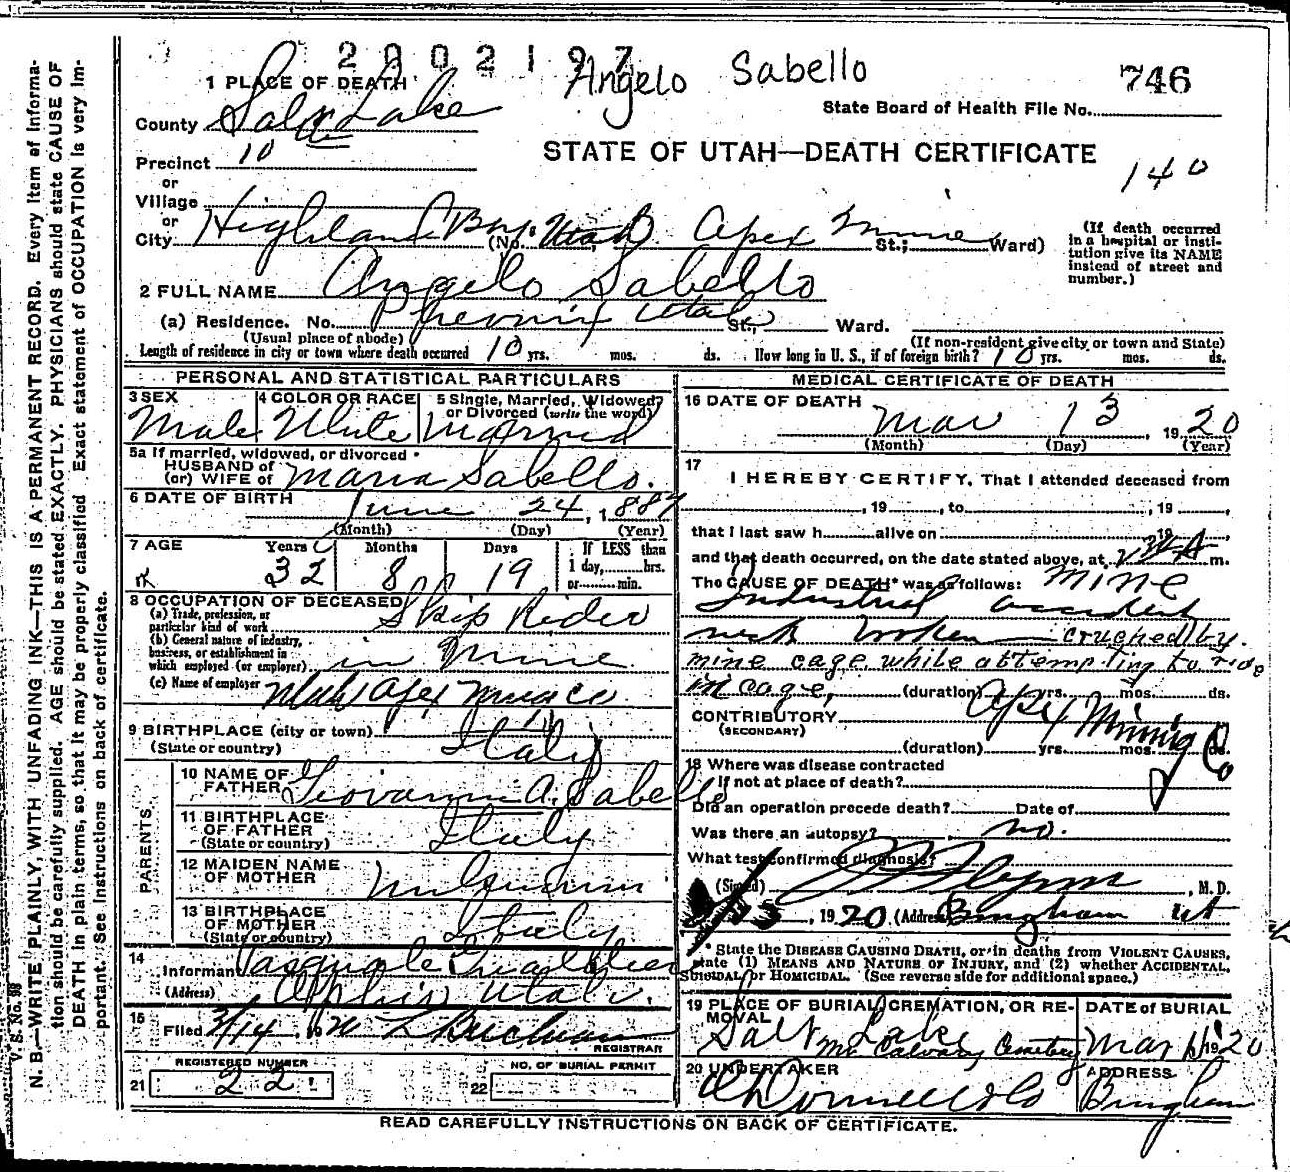 2002197
Angelo Sabello
746
1 PLACE OF DEATH
State Board of Health File No.
County Salt Lake
STATE OF UTAH—DEATH CERTIFICATE
Precinct 10
140
or
Village
or
City Highland Boy Utah (No. Apex Mine St.; Ward)
(If death occurred in a hospital or institution give its NAME instead of street and number.)
2 FULL NAME Angelo Sabello
(a) Residence. No. Phoenix Utah St., Ward.
(Usual place of abode) (If non-resident give city or town and State)
Length of residence in city or town where death occurred 10 yrs. mos. ds. How long in U. S., if of foreign birth? 10 yrs. mos. ds.
PERSONAL AND STATISTICAL PARTICULARS
3 SEX Male
4 COLOR OR RACE White
5 Single, Married, Widowed, or Divorced (write the word) Married
5a If married, widowed, or divorced
HUSBAND of
(or) WIFE of Maria Sabello.
6 DATE OF BIRTH June 24, 1887
(Month) (Day) (Year)
7 AGE Years 32 Months 8 Days 19 If LESS than 1 day, hrs. or min.
8 OCCUPATION OF DECEASED
(a) Trade, profession, or particular kind of work Skip Rider
(b) General nature of industry, business, or establishment in which employed (or employer) in Mine
(c) Name of employer Utah Apex Mining Co
9 BIRTHPLACE (city or town)
(State or country) Italy
PARENTS
10 NAME OF FATHER Giovanni A. Sabello
11 BIRTHPLACE OF FATHER
(State or country) Italy
12 MAIDEN NAME OF MOTHER
13 BIRTHPLACE OF MOTHER
(State or country) Italy
14 Informant Pasquale
(Address) Utah.
15 Filed 3/14 1920 L Buchman
REGISTRAR
REGISTERED NUMBER
21 22
NO. OF BURIAL PERMIT
22
MEDICAL CERTIFICATE OF DEATH
16 DATE OF DEATH
Mar 13, 1920
(Month) (Day) (Year)
17 I HEREBY CERTIFY, That I attended deceased from
, 19 , to , 19 ,
that I last saw h alive on , 19
and that death occurred, on the date stated above, at m.
The CAUSE OF DEATH* was as follows: mine
Industrial accident
neck broken — crushed by
mine cage while attempting to ride
in cage, (duration) yrs. mos. ds.
CONTRIBUTORY Apex Mining Co
(SECONDARY)
(duration) yrs. mos. ds.
18 Where was disease contracted
if not at place of death?
Did an operation precede death? Date of
Was there an autopsy? no.
What test confirmed diagnosis?
(Signed) Flynn, M. D.
, 1920 (Address) Bingham Ut
* State the DISEASE CAUSING DEATH, or in deaths from VIOLENT CAUSES, state (1) MEANS AND NATURE OF INJURY, and (2) whether ACCIDENTAL, SUICIDAL, or HOMICIDAL. (See reverse side for additional space.)
19 PLACE OF BURIAL, CREMATION, OR REMOVAL
Salt Lake
Mt Calvary Cemetery
DATE of BURIAL
Mar 1920
20 UNDERTAKER
O'Donnell & Co
ADDRESS
Bingham
READ CAREFULLY INSTRUCTIONS ON BACK OF CERTIFICATE.
V. S. No. 98
N. B.—WRITE PLAINLY, WITH UNFADING INK—THIS IS A PERMANENT RECORD. Every item of information should be carefully supplied. AGE should be stated EXACTLY. PHYSICIANS should state CAUSE OF DEATH in plain terms, so that it may be properly classified. Exact statement of OCCUPATION is very important. See instructions on back of certificate.